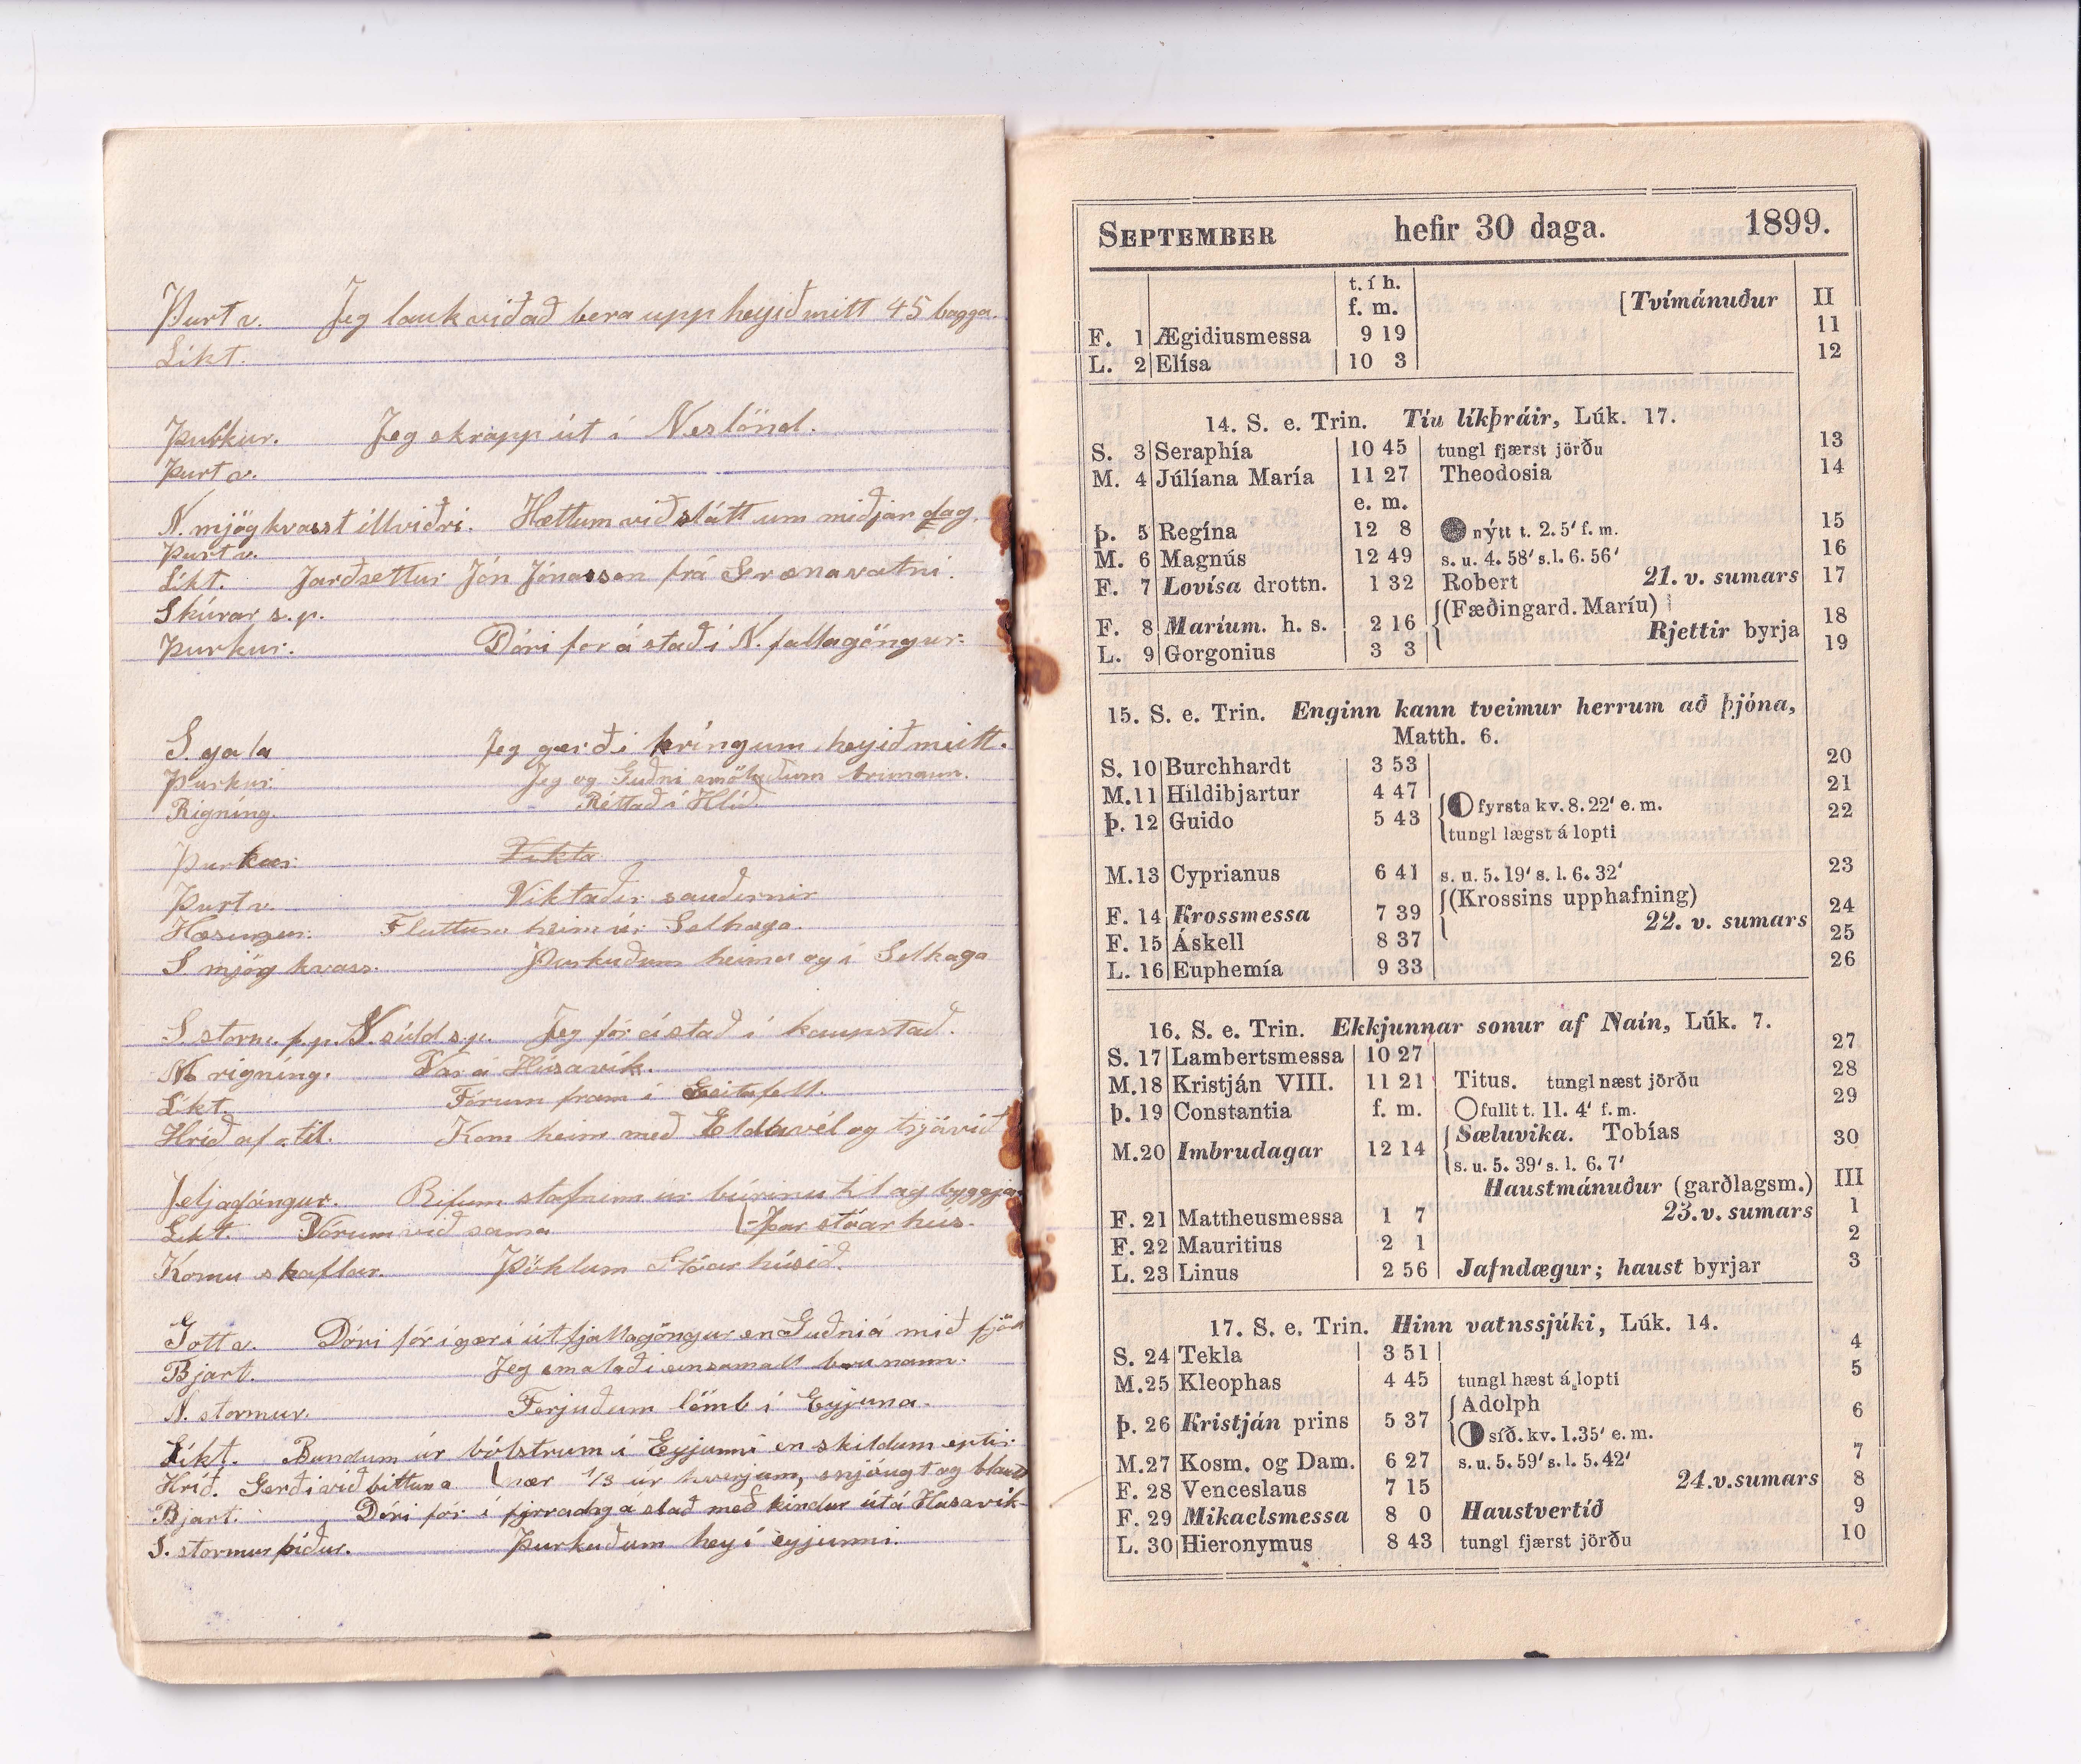 Þurt v. Jeg lauk við að bera upp heyið mitt 45 bagga.
Líkt.
Þurkur. Jeg skrapp út í Neslönd.
Þurt v.
N. mjög kvasst illviðri. Hættum við slátt um miðjan dag.
Þurt v.
Líkt. Jarðsettur Jón Jónasson frá Grænavatni.
Skúrar s.p.
Þurkur. Dóri fór á stað í N. fjallagöngur.
S. gola Jeg gerði kringum heyið mitt.
Þurkur. Jeg og Guðni smöluðum
Rigning. Réttað í Hlíð
Þurkur. Vikta
Þurt v. Viktaðir sauðirnir
Fluttum heim úr Selhaga.
S mjög kvass. Þurkuðum heima og í Selhaga
S. storm. f.p. N. síðd s.p. Jeg fór á stað í kaupstað.
N rigning. Var á Húsavík.
Líkt. Fórum fram í Geitafell.
Hríð af o til. Kom heim með Eldavél og trjávið
Jeljagángur. Rifum stafninn úr búrinu til að byggja
Líkt. Vorum við sama þar stóarhús.
Komu skaflar. Þöktum Stóarhúsið.
Gott v. Dóri fór í gær í útfjallagöngur en Guðni á mið fjöll
Bjart. Jeg smalaði einsamall
N. stormur. Ferjuðum lömb í Eyjuna.
Líkt. Bundum úr bólstrum í Eyjunni en skildum eptir
Hríð. Gerði við bittuna nær 1/3 úr hverjum, snjóugt og blautt
Bjart. Dóri fór í fyrradag á stað með kindur út á Húsavík
S. stormur þíður. Þurkuðum hey í eyjunni.
SEPTEMBER hefir 30 daga. 1899.
t. í h.
f. m. [Tvímánuður II
F. 1 Ægidiusmessa 9 19 11
L. 2 Elísa 10 3 12
14. S. e. Trin. Tíu líkþráir, Lúk. 17.
S. 3 Seraphía 10 45 tungl fjærst jörðu 13
M. 4 Júlíana María 11 27 Theodosia 14
e. m.
Þ. 5 Regína 12 8 nýtt t. 2. 5′ f. m. 15
M. 6 Magnús 12 49 s. u. 4. 58′ s. l. 6. 56′ 16
F. 7 Lovísa drottn. 1 32 Robert 21. v. sumars 17
F. 8 Maríum. h. s. 2 16 (Fæðingard. Maríu) 18
L. 9 Gorgonius 3 3 Rjettir byrja 19
15. S. e. Trin. Enginn kann tveimur herrum að þjóna,
Matth. 6.
S. 10 Burchhardt 3 53 20
M. 11 Hildibjartur 4 47 fyrsta kv. 8. 22′ e. m. 21
Þ. 12 Guido 5 43 tungl lægst á lopti 22
M. 13 Cyprianus 6 41 s. u. 5. 19′ s. l. 6. 32′ 23
F. 14 Krossmessa 7 39 (Krossins upphafning) 24
22. v. sumars
F. 15 Áskell 8 37 25
L. 16 Euphemía 9 33 26
16. S. e. Trin. Ekkjunnar sonur af Naín, Lúk. 7.
S. 17 Lambertsmessa 10 27 27
M. 18 Kristján VIII. 11 21 Titus. tungl næst jörðu 28
Þ. 19 Constantia f. m. fullt t. 11. 4′ f. m. 29
M. 20 Imbrudagar 12 14 Sæluvika. Tobías 30
s. u. 5. 39′ s. l. 6. 7′
Haustmánuður (garðlagsm.) III
F. 21 Mattheusmessa 1 7 23. v. sumars 1
F. 22 Mauritius 2 1 2
L. 23 Linus 2 56 Jafndægur; haust byrjar 3
17. S. e. Trin. Hinn vatnssjúki, Lúk. 14.
S. 24 Tekla 3 51 4
M. 25 Kleophas 4 45 tungl hæst á lopti 5
Þ. 26 Kristján prins 5 37 Adolph 6
síð. kv. 1. 35′ e. m.
M. 27 Kosm. og Dam. 6 27 s. u. 5. 59′ s. l. 5. 42′ 7
F. 28 Venceslaus 7 15 24. v. sumars 8
F. 29 Mikaelsmessa 8 0 Haustvertíð 9
L. 30 Hieronymus 8 43 tungl fjærst jörðu 10